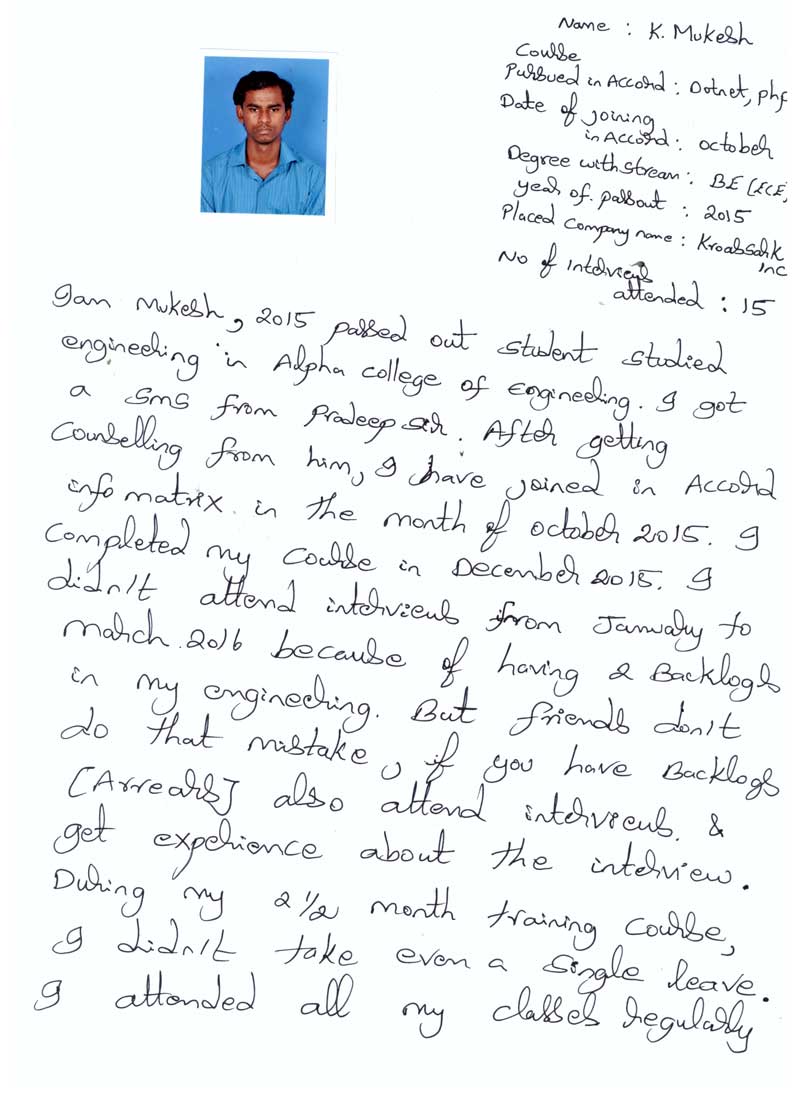 Name : K. Mukesh
Course
Pursued in Accord : Dotnet, php
Date of joining
in Accord : october
Degree with stream : BE [ECE]
year of passout : 2015
Placed company name : Kroobsahk
Inc
No of Interviews
attended : 15
I am Mukesh, 2015 passed out student studied
engineering in Alpha college of engineering. I got
a sms from Pradeep sir. After getting
Counselling from him, I have joined in Accord
info matrix in the month of october 2015. I
Completed my course in December 2015. I
didn't attend interviews from January to
march 2016 because of having 2 Backlogs
in my engineering. But friends don't
do that mistake, if you have Backlogs
[Arrears] also attend interviews. &
get experience about the interview.
During my 2 1/2 month training course,
I didn't take even a single leave.
I attended all my classes regularly